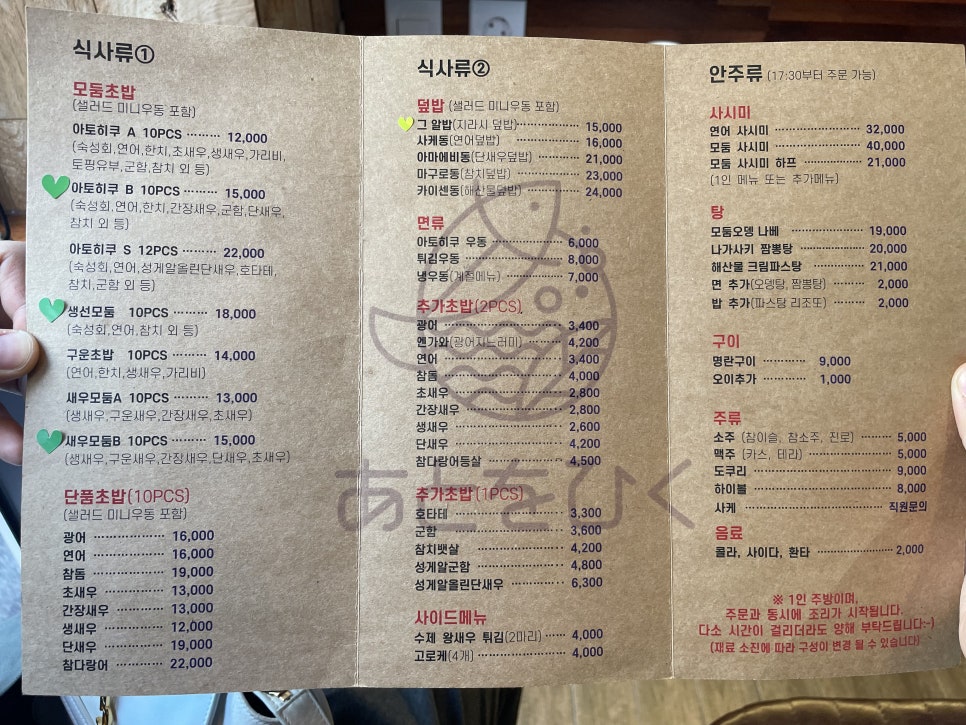 식사류①
모둠초밥
(샐러드 미니우동 포함)
아토히쿠 A 10PCS ········· 12,000
(숙성회,연어,한치,초새우,생새우,가리비,
토핑유부,군함,참치 외 등)
아토히쿠 B 10PCS ········· 15,000
(숙성회,연어,한치,간장새우,군함,단새우,
참치 외 등)
아토히쿠 S 12PCS ········· 22,000
(숙성회,연어,성게알올린단새우,호타테,
참치,군함 외 등)
생선모둠 10PCS ········· 18,000
(숙성회,연어,참치 외 등)
구운초밥 10PCS ········· 14,000
(연어,한치,생새우,가리비)
새우모둠A 10PCS ········· 13,000
(생새우,구운새우,간장새우,초새우)
새우모둠B 10PCS ········· 15,000
(생새우,구운새우,간장새우,단새우,초새우)
단품초밥(10PCS)
(샐러드 미니우동 포함)
광어 ················ 16,000
연어 ················ 16,000
참돔 ················ 19,000
초새우 ············· 13,000
간장새우 ·········· 13,000
생새우 ············· 12,000
단새우 ············· 19,000
참다랑어 ·········· 22,000
식사류②
덮밥 (샐러드 미니우동 포함)
그 알밥(지라시 덮밥)················ 15,000
사케동(연어덮밥) ················ 16,000
아마에비동(단새우덮밥) ········ 21,000
마구로동(참치덮밥) ················ 23,000
카이센동(해산물덮밥) ············ 24,000
면류
아토히쿠 우동 ················ 6,000
튀김우동 ················ 8,000
냉우동(계절메뉴) ················ 7,000
추가초밥(2PCS)
광어 ················ 3,400
엔가와(광어지느러미) ········ 4,200
연어 ················ 3,400
참돔 ················ 4,000
초새우 ················ 2,800
간장새우 ················ 2,800
생새우 ················ 2,600
단새우 ················ 4,200
참다랑어등살 ················ 4,500
추가초밥(1PCS)
호타테 ················ 3,300
군함 ················ 3,600
참치뱃살 ················ 4,200
성게알군함 ················ 4,800
성게알올린단새우 ············ 6,300
사이드메뉴
수제 왕새우 튀김(2마리) ······ 4,000
고로케(4개) ················ 4,000
あとをひく
안주류 (17:30부터 주문 가능)
사시미
연어 사시미 ················ 32,000
모둠 사시미 ················ 40,000
모둠 사시미 하프 ············ 21,000
(1인 메뉴 또는 추가메뉴)
탕
모둠오뎅 나베 ················ 19,000
나가사키 짬뽕탕 ············ 20,000
해산물 크림파스탕 ·········· 21,000
면 추가(오뎅탕, 짬뽕탕) ········ 2,000
밥 추가(파스탕 리조또) ········ 2,000
구이
명란구이 ············ 9,000
오이추가 ············ 1,000
주류
소주 (참이슬, 참소주, 진로) ········ 5,000
맥주 (카스, 테라) ················ 5,000
도쿠리 ················ 9,000
하이볼 ················ 8,000
사케 ················ 직원문의
음료
콜라, 사이다, 환타 ················ 2,000
※ 1인 주방이며,
주문과 동시에 조리가 시작됩니다.
다소 시간이 걸리더라도 양해 부탁드립니다:-)
(재료 소진에 따라 구성이 변경 될 수 있습니다)